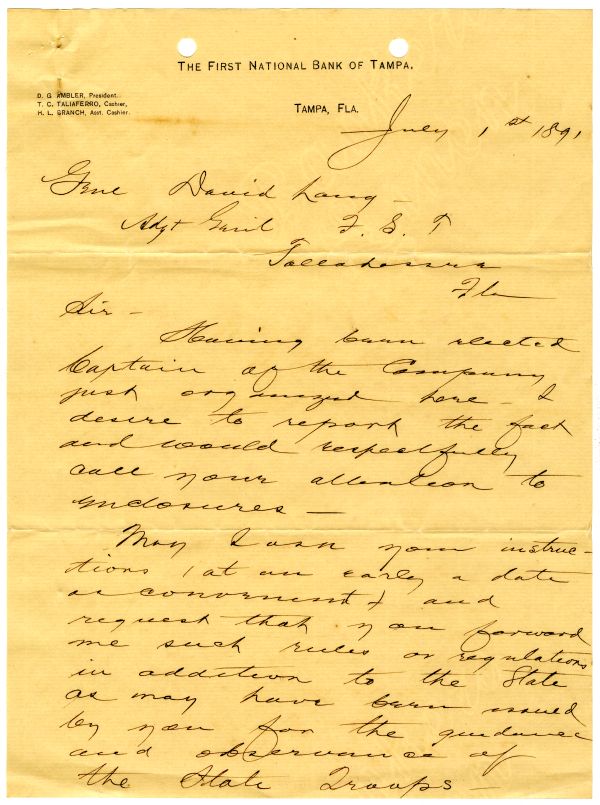 THE FIRST NATIONAL BANK OF TAMPA.
D. G. AMBLER, President.
T. C. TALIAFERRO, Cashier,
H. L. BRANCH, Asst. Cashier.
TAMPA, FLA.
July 1st 1891
Genl David Lang -
Adgt Genl F. S. T
Tallahassee
Fla
Sir -
Having been elected
Captain of the Company
just organized here - I
desire to report the fact
and would respectfully
call your attention to
enclosures -
May I ask your instruc-
tions (at as early a date
as convenient) and
request that you forward
me such rules or regulations
in addition to the State
as may have been issued
by you for the guidance
and observance of
the State Troops -